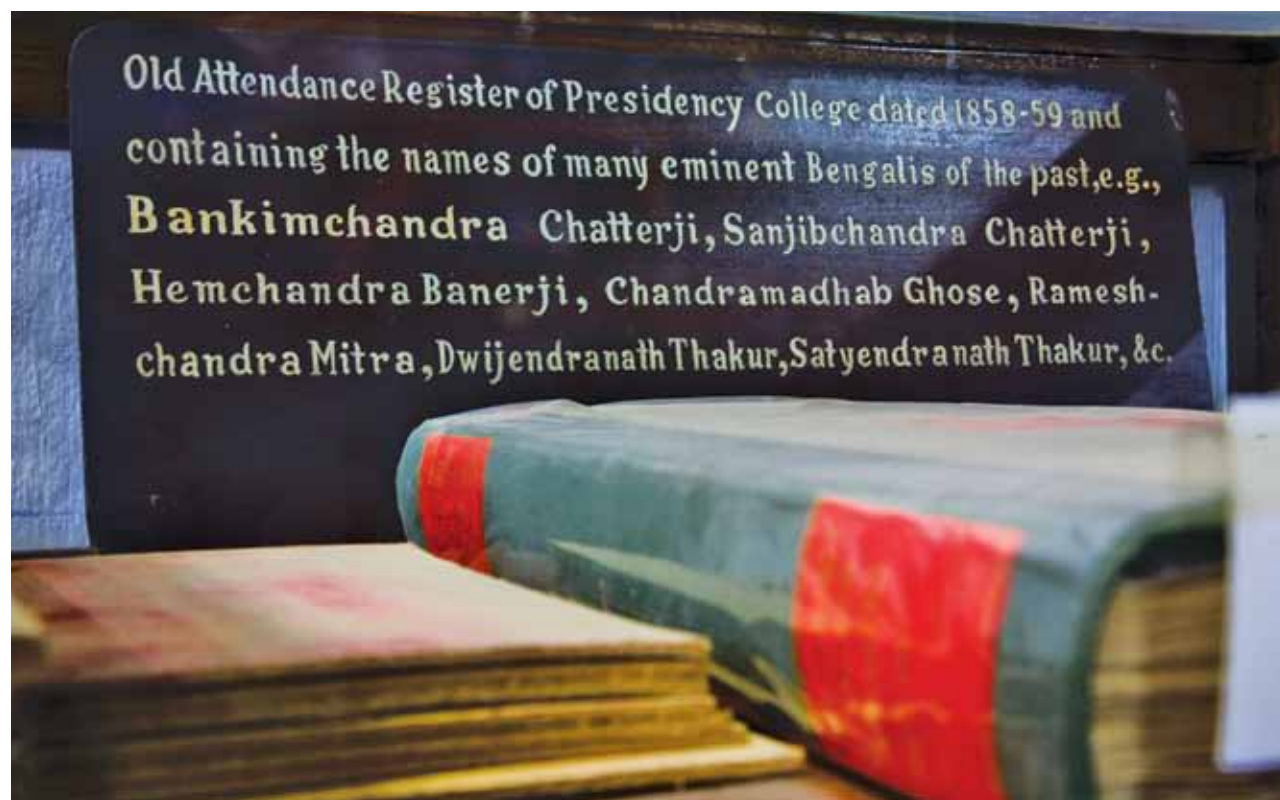 Old Attendance Register of Presidency College dated 1858-59 and
containing the names of many eminent Bengalis of the past,e.g.,
Bankimchandra Chatterji, Sanjibchandra Chatterji,
Hemchandra Banerji, Chandramadhab Ghose, Ramesh-
chandra Mitra, Dwijendranath Thakur, Satyendranath Thakur, &c.